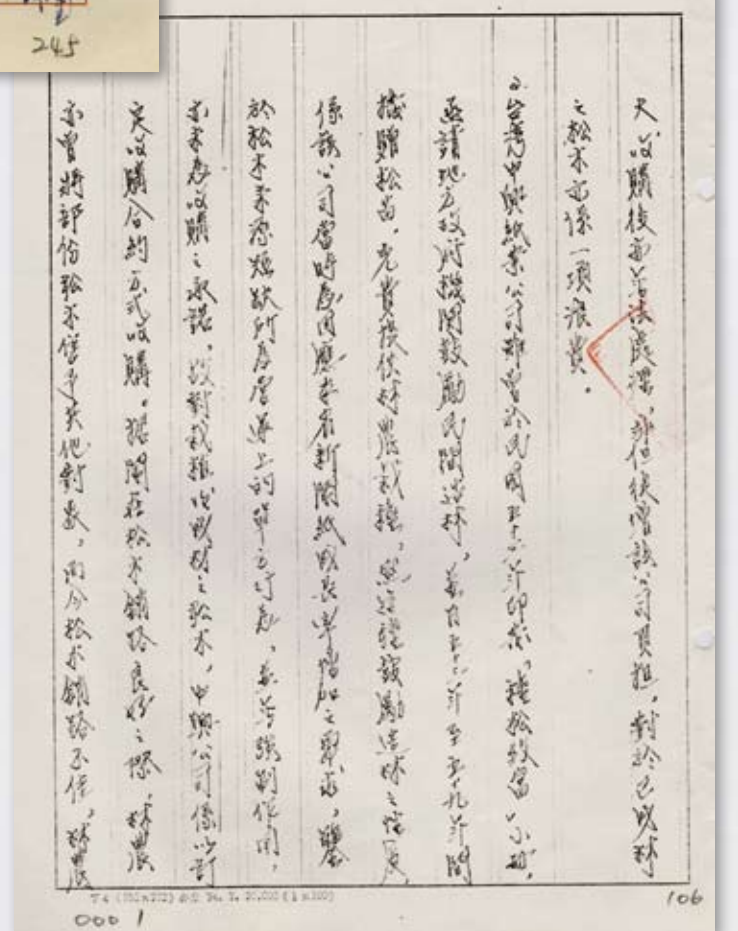 245
大，收購後亦無法處理，非但徒增該公司負擔，對於已成材
之松木亦係一項浪費。
台灣中興紙業公司雖曾於民國五十六年印發「種松致富」小冊，
函請地方政府機關鼓勵民間造林，並自五十六年至五十九年間
損贈松苗，免費提供林農栽植，然這種鼓勵造林之措施，
係該公司當時為因應本省新聞紙成長率增加之需求，鑒
於松木來源短缺所為道上的單方行為，並無強制作用，
亦未為收購之承諾，故對栽植成材之松木，中興公司係以訂
定收購合約方式收購。據聞在松木銷路良好之際，林農
亦曾將部份松木售予其他對象，而今松木銷路不佳，林農
000 1
106